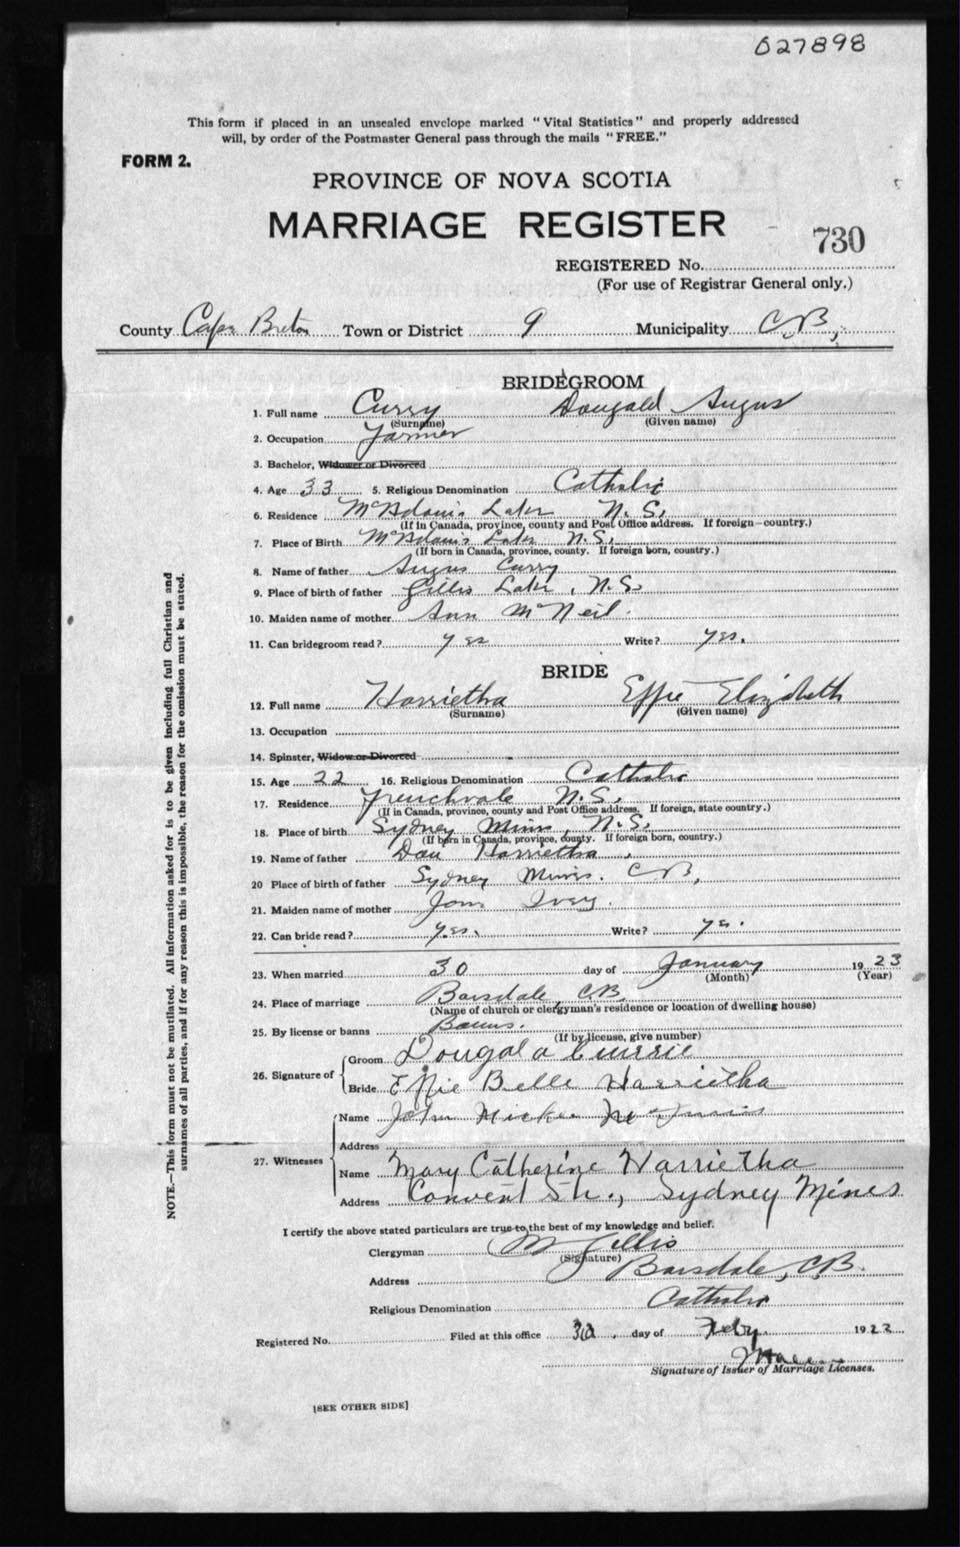 027898
This form if placed in an unsealed envelope marked "Vital Statistics" and properly addressed
will, by order of the Postmaster General pass through the mails "FREE."
FORM 2.
PROVINCE OF NOVA SCOTIA
MARRIAGE REGISTER
730
REGISTERED No.
(For use of Registrar General only.)
County Cape Breton Town or District 9 Municipality C.B,
BRIDEGROOM
1. Full name Curry Dougald Angus
(Surname) (Given name)
2. Occupation Farmer
3. Bachelor, Widower or Divorced
4. Age 33 5. Religious Denomination Catholic
6. Residence McAdam's Lake N.S.
(If in Canada, province, county and Post Office address. If foreign—country.)
7. Place of Birth McAdam's Lake N.S.
(If born in Canada, province, county. If foreign born, country.)
8. Name of father Angus Curry
9. Place of birth of father Gillis Lake, N.S.
10. Maiden name of mother Ann McNeil.
11. Can bridegroom read? yes Write? yes.
BRIDE
12. Full name Harrietha Effie Elizabeth
(Surname) (Given name)
13. Occupation
14. Spinster, Widow or Divorced
15. Age 22 16. Religious Denomination Catholic
17. Residence Frenchvale N.S.
(If in Canada, province, county and Post Office address. If foreign, state country.)
18. Place of birth Sydney Mines, N.S.
(If born in Canada, province, county. If foreign born, country.)
19. Name of father Dan Harrietha
20 Place of birth of father Sydney Mines. CB,
21. Maiden name of mother Ivey.
22. Can bride read? Yes. Write? yes.
23. When married 30 day of January 1923
(Month) (Year)
24. Place of marriage Boisdale, CB
(Name of church or clergyman's residence or location of dwelling house)
25. By license or banns Banns.
(If by license, give number)
26. Signature of Groom Dougald Currie
Bride Effie Belle Harrietha
27. Witnesses Name John
Address
Name Mary Catherine Harrietha
Address Convent St., Sydney Mines
I certify the above stated particulars are true to the best of my knowledge and belief.
Clergyman M Gillis
(Signature)
Address Boisdale, C.B.
Religious Denomination Catholic
Registered No. Filed at this office day of Feby. 1923
Signature of Issuer of Marriage Licenses.
[SEE OTHER SIDE]
NOTE.—This form must not be mutilated. All information asked for is to be given including full Christian and
surnames of all parties, and if for any reason this is impossible, the reason for the omission must be stated.